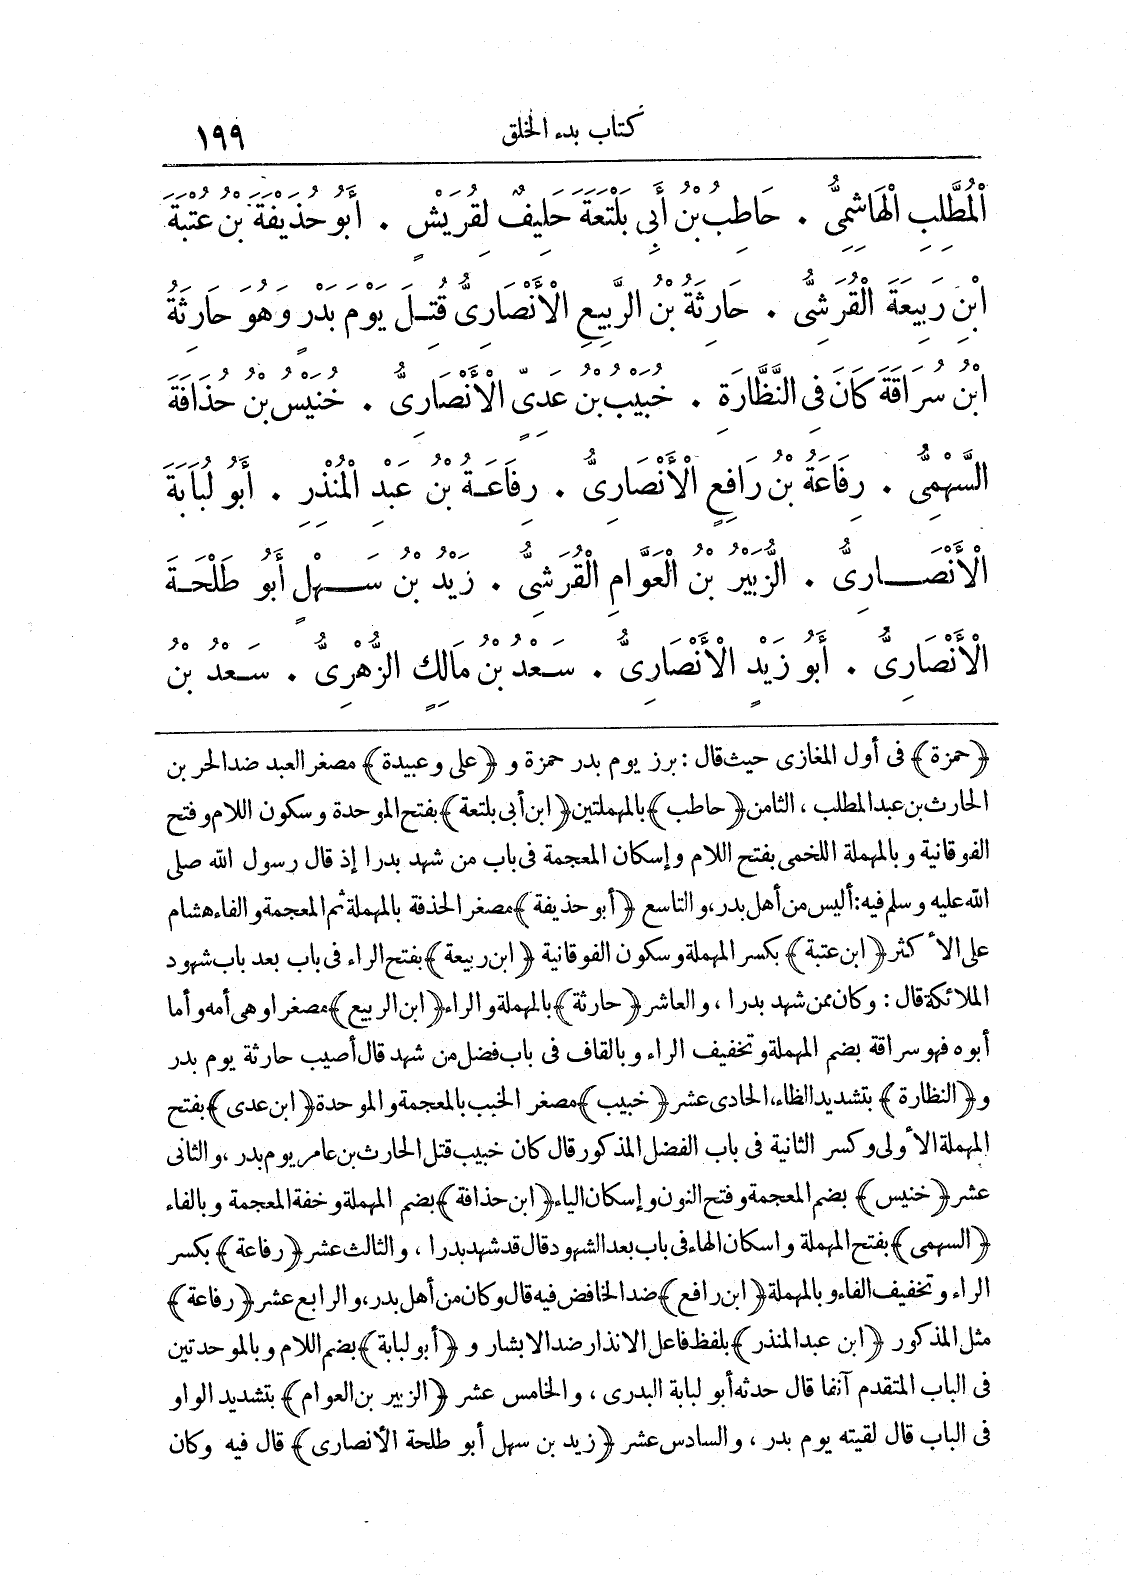 كتاب بدء الخلق ١٩٩
الْمُطَّلِبِ الْهَاشِمِىُّ . حَاطِبُ بْنُ أَبِى بَلْتَعَةَ حَلِيفٌ لِقُرَيْشٍ . أَبُو حُذَيْفَةَ بْنُ عُتْبَةَ
ابْنِ رَبِيعَةَ الْقُرَشِىُّ . حَارِثَةُ بْنُ الرَّبِيعِ الْأَنْصَارِىُّ قُتِلَ يَوْمَ بَدْرٍ وَهُوَ حَارِثَةُ
ابْنُ سُرَاقَةَ كَانَ فِى النَّظَّارَةِ . خُبَيْبُ بْنُ عَدِىٍّ الْأَنْصَارِىُّ . خُنَيْسُ بْنُ حُذَافَةَ
السَّهْمِىُّ . رِفَاعَةُ بْنُ رَافِعٍ الْأَنْصَارِىُّ . رِفَاعَةُ بْنُ عَبْدِ الْمُنْذِرِ . أَبُو لُبَابَةَ
الْأَنْصَارِىُّ . الزُّبَيْرُ بْنُ الْعَوَّامِ الْقُرَشِىُّ . زَيْدُ بْنُ سَهْلٍ أَبُو طَلْحَةَ
الْأَنْصَارِىُّ . أَبُو زَيْدٍ الْأَنْصَارِىُّ . سَعْدُ بْنُ مَالِكٍ الزُّهْرِىُّ . سَعْدُ بْنُ
﴿حمزة﴾ فى أول المغازى حيث قال : برز يوم بدر حمزة و ﴿على وعبيدة﴾ مصغر العبد ضد الحر بن
الحارث بن عبد المطلب ، الثامن ﴿حاطب﴾ بالمهملتين ﴿ابن أبى بلتعة﴾ بفتح الموحدة وسكون اللام وفتح
الفوقانية وبالمهملة اللخمى بفتح اللام وإسكان المعجمة فى باب من شهد بدرا إذ قال رسول الله صلى
الله عليه وسلم فيه: أليس من أهل بدر، والتاسع ﴿أبو حذيفة﴾ مصغر الحذفة بالمهملة ثم المعجمة والفاء هشام
على الأكثر ﴿ابن عتبة﴾ بكسر المهملة وسكون الفوقانية ﴿ابن ربيعة﴾ بفتح الراء فى باب بعد باب شهود
الملائكة قال : وكان ممن شهد بدرا ، والعاشر ﴿حارثة﴾ بالمهملة والراء ﴿ابن الربيع﴾ مصغرا وهى أمه وأما
أبوه فهو سراقة بضم المهملة وتخفيف الراء وبالقاف فى باب فضل من شهد قال أصيب حارثة يوم بدر
و﴿النظارة﴾ بتشديد الظاء، الحادى عشر ﴿خبيب﴾ مصغر الخبب بالمعجمة والموحدة ﴿ابن عدى﴾ بفتح
المهملة الأولى وكسر الثانية فى باب الفضل المذكور قال كان خبيب قتل الحارث بن عامر يوم بدر ، والثانى
عشر ﴿خنيس﴾ بضم المعجمة وفتح النون وإسكان الياء ﴿ابن حذافة﴾ بضم المهملة وخفة المعجمة وبالفاء
﴿السهمى﴾ بفتح المهملة واسكان الهاء فى باب بعد الشهود قال قد شهد بدرا ، والثالث عشر ﴿رفاعة﴾ بكسر
الراء وتخفيف الفاء وبالمهملة ﴿ابن رافع﴾ ضد الخافض فيه قال وكان من أهل بدر، والرابع عشر ﴿رفاعة﴾
مثل المذكور ﴿ابن عبد المنذر﴾ بلفظ فاعل الانذار ضد الابشار و ﴿أبو لبابة﴾ بضم اللام وبالموحدتين
فى الباب المتقدم آنفا قال حدثه أبو لبابة البدرى ، والخامس عشر ﴿الزبير بن العوام﴾ بتشديد الواو
فى الباب قال لقيته يوم بدر ، والسادس عشر ﴿زيد بن سهل أبو طلحة الأنصارى﴾ قال فيه وكان